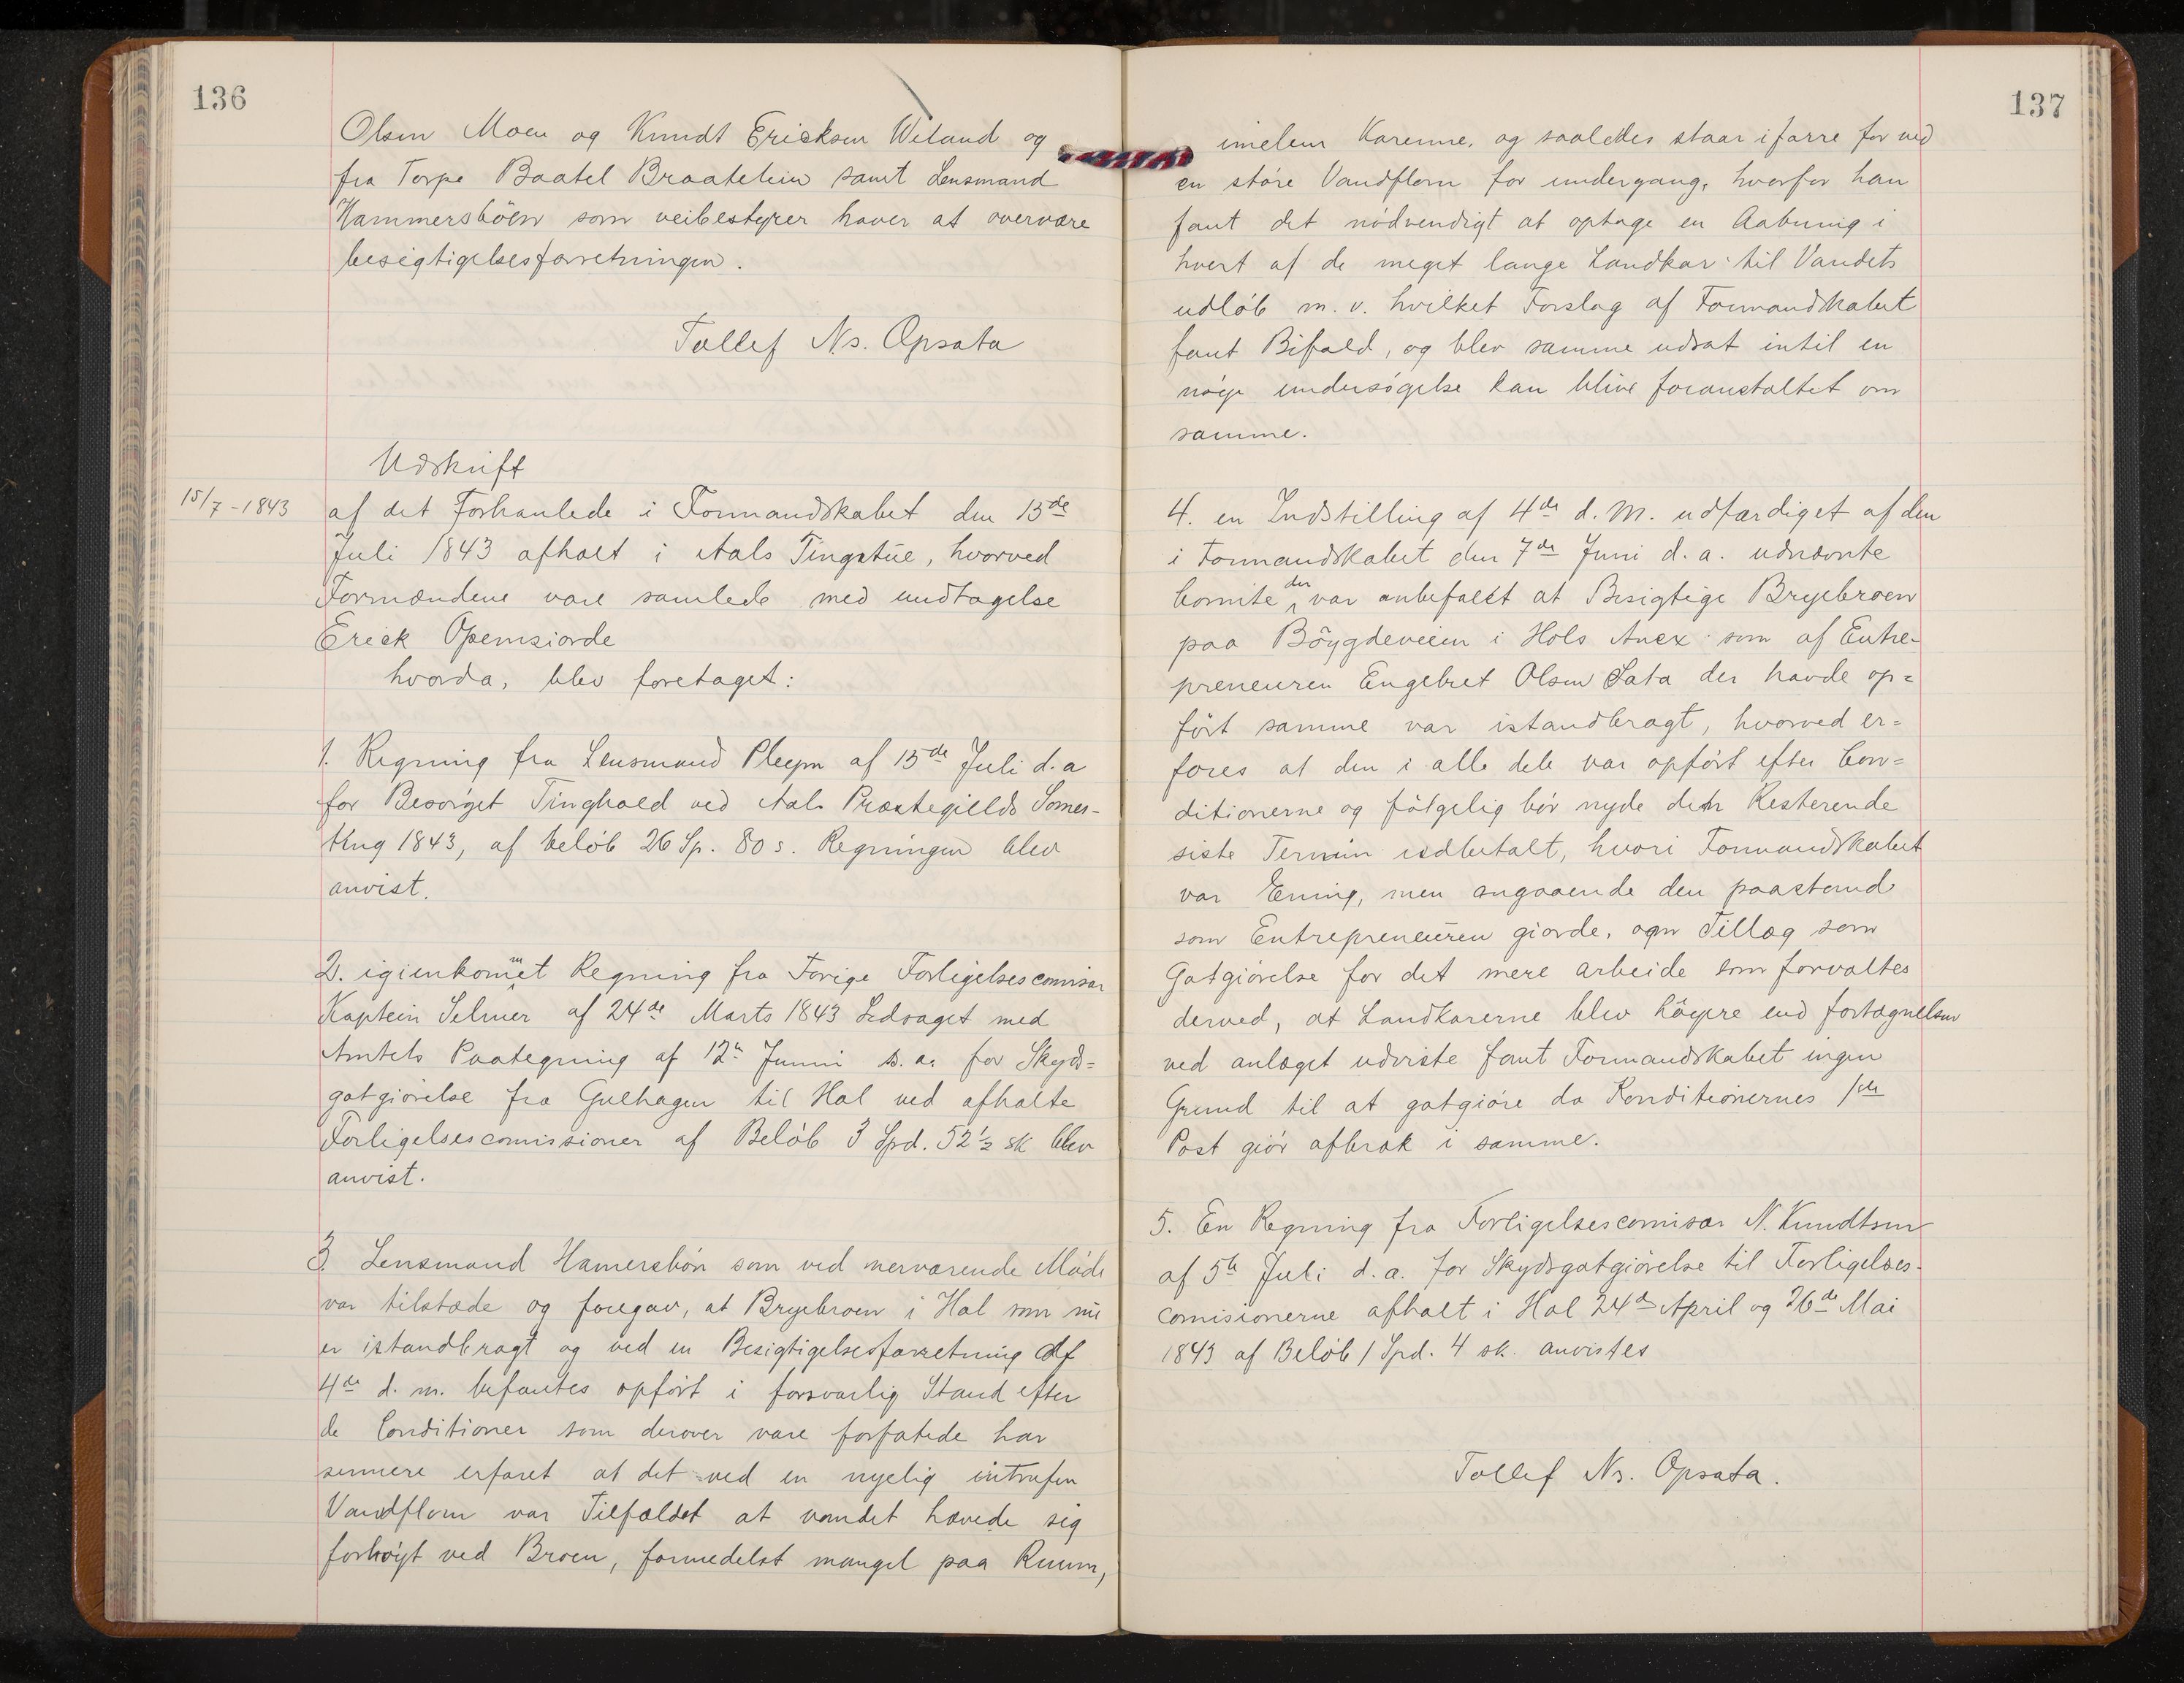 136
Olsen Moen og Knudt Ericksen Viland og
fra Torpe Baatel Braatelien samt Lensmand
Hammersböen som veibestyrer haver at overvære
besigtigelsesforretningen.
Tollef Ns. Opsata
Udskrift
15/7-1843
af det Forhanlede i Formandskabet den 15de
Juli 1843 afholt i Aals Tingstue, hvorved
Formændene vare samlede med undtagelse
Erick Opemsiorde
hvorda, blev foretaget:
1. Regning fra Lensmand Pleym af 15de Juli d.a
for Besörget Tinghold ved Aals Præstegields Somer-
ting 1843, af belöb 26 Sp. 80 s. Regningen blev
anvist.
2. igienkommet Regning fra Forige Forligelsescomisær
Kaptein Selmer af 24de Marts 1843 Ledsaget med
Amtets Paategning af 12te Junni s.a. for Skyds=
gotgiörelse fra Gulhagen til Hol ved afholte
Forligelsescomissioner af Belöb 3 Spd. 52½ sk blev
anvist.
3. Lensmand Hamersbön som ved nerværende Möde
var tilstæde og foregav, at Bryebroen i Hol som nu
er istandbragt og ved en Besigtigelsesforretning af
4de d. m. befantes opfört i forsvarlig Stand efter
de Conditioner som derover vare forfatede har
sennere erfaret at det ved en nyelig intrufen
Vandflom var Tilfældet at vandet hævede sig
forhöyt ved Broen, formedelst mangel paa Ruum,
137
imelem Karenne, og saaledes staar i farre for ved
en störe Vandflom for undergang, hvorfor han
fant det nödvendigt at optage en Aabning i
hvert af de meget lange Landkar til Vandets
udlöb m. v. hvilket Forslag af Formandskabet
fant Bifald, og blev samme udsat intil en
nöye undersögelse kan blive foranstaltet om
samme.
4. en Indstilling af 4de d. M. udfærdiget af den
i Formandskabet den 7de Juni d. a. udnævnte
Comite der var anbefalet at Besigtige Bryebroen
paa Böygdeveien i Hols Anex som af Entre-
preneuren Engebret Olsen Sata der havde op=
fört samme var istandbragt, hvorved er=
fores at den i alle dele var opfört efter Con=
ditionerne og fölgelig bör nyde den Resterende
siste Termin udbetalt, hvori Formandskabet
var Ening, men angaaende den paastand
som Entrepreneuren giorde, om Tillæg som
Gotgiörelse for det mere arbeide som forvoltes
derved, at Landkarerne blev höyere end fortegnelsen
ved anlæget udviste fant Formandskabet ingen
Grund til at gotgiöre da Konditionernes 1ste
Post giör afbræk i samme.
5. En Regning fra Forligelsescomisær N. Knudtsen
af 5te Juli d.a. for Skydsgotgiörelse til Forligelses-
comisionerne afholt i Hol 24de April og 26de Mai
1843 af Belöb 1 Spd. 4 sk. anvistes
Tollef Ns. Opsata.